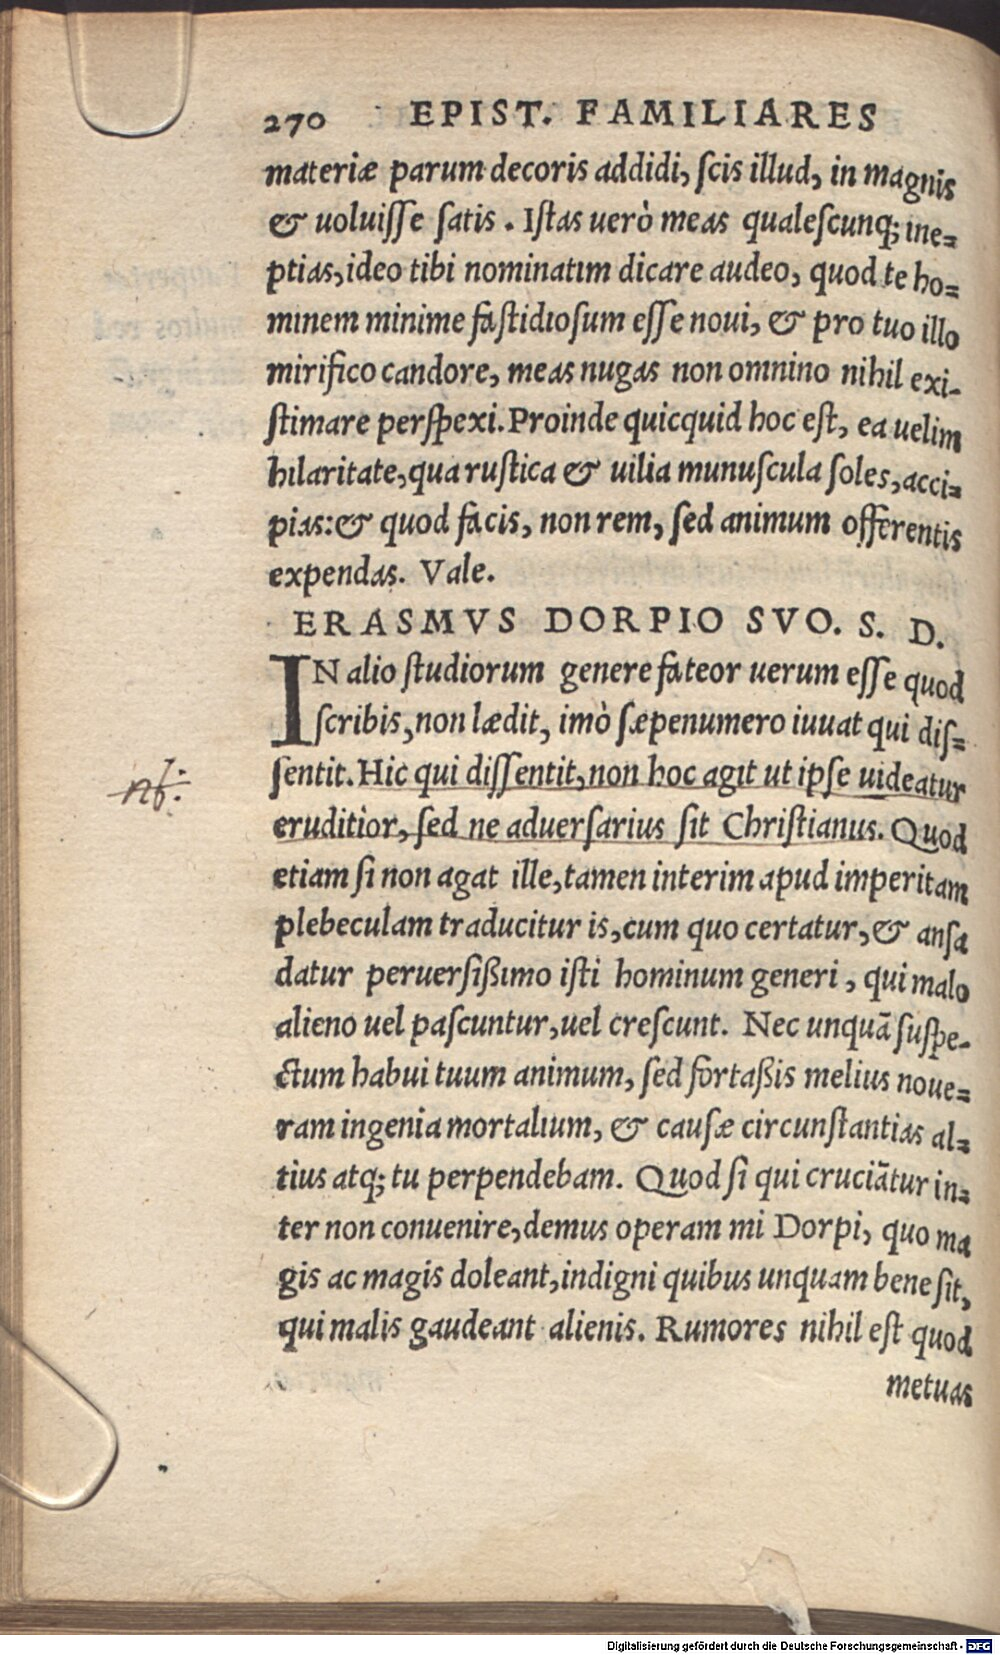 270 EPIST. FAMILIARES
materiæ parum decoris addidi, ſcis illud, in magnis
& uoluiſſe ſatis. Iſtas uerò meas qualeſcunq; ine=
ptias, ideo tibi nominatim dicare audeo, quod te ho=
minem minime faſtidioſum eſſe noui, & pro tuo illo
mirifico candore, meas nugas non omnino nihil exi-
ſtimare perſpexi. Proinde quicquid hoc eſt, ea uelim
hilaritate, qua ruſtica & uilia munuſcula ſoles, acci=
pias: & quod facis, non rem, ſed animum offerentis
expendas. Vale.
ERASMVS DORPIO SVO. S. D.
IN alio ſtudiorum genere fateor uerum eſſe quod
ſcribis, non lædit, imò ſæpenumero iuuat qui diſ=
ſentit. Hic qui diſſentit, non hoc agit ut ipſe uideatur
nb.
eruditior, ſed ne aduerſarius ſit Chriſtianus. Quod
etiam ſi non agat ille, tamen interim apud imperitam
plebeculam traducitur is, cum quo certatur, & anſa
datur peruerſißimo iſti hominum generi, qui malo
alieno uel paſcuntur, uel creſcunt. Nec unquā ſuſpe-
ctum habui tuum animum, ſed fortaßis melius noue=
ram ingenia mortalium, & cauſæ circunſtantias al=
tius atq; tu perpendebam. Quod ſi qui cruciātur in=
ter non conuenire, demus operam mi Dorpi, quo ma
gis ac magis doleant, indigni quibus unquam bene ſit,
qui malis gaudeant alienis. Rumores nihil eſt quod
metuas
Digitalisierung gefördert durch die Deutsche Forschungsgemeinschaft - DFG